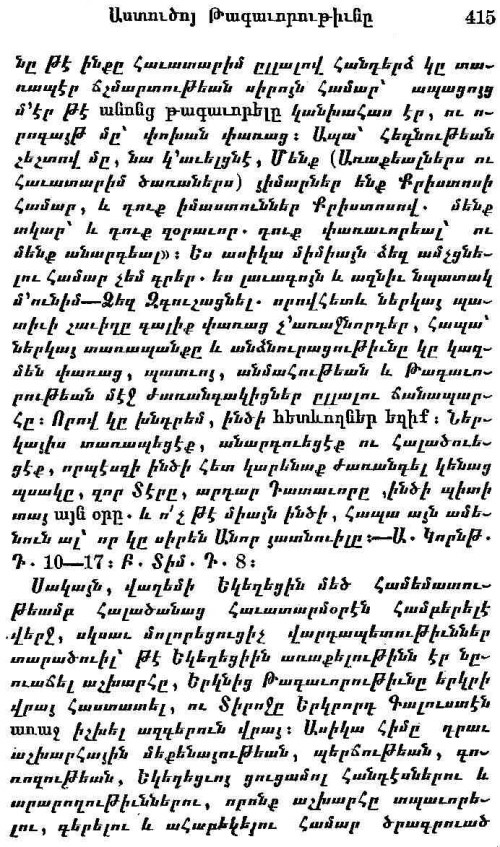 Աստուծոյ Թագաւորութիւնը 415
նը թէ ինքը Հաւատարիմ ըլլալով Հանդերձ կը տա-
ռապէր ճշմարտութեան սիրոյն Համար՝ ապացոյց
մ՚էր թէ անոնց թագաւորելը կանխահաս էր, ու ո-
րոգայթ մը՝ փոխան փառաց։ Ապա՝ Հեգնութեան
շեշտով մը, նա կ՚աւելցնէ, Մենք (Առաքեալներս ու
Հաւատարիմ ծառաներս) յիմարներ ենք Քրիստոսի
Համար, և դուք իմաստուններ Քրիստոսով. մենք
տկար՝ և դուք զօրաւոր. դուք փառաւորեալ՝ ու
մենք անարգեալ»։ Ես ասիկա միմիայն ձեզ ամչցնե-
լու Համար չեմ գրեր. ես լաւագոյն և ազնիւ նպատակ
մ՚ունիմ—Ձեզ Զգուշացնել. որովհետև ներկայ պա-
տիւի շաւիղը գալիք փառաց չ՚առաջնորդեր, Հապա՝
ներկայ տառապանքը և անձնուրացութիւնը կը կազ-
մեն փառաց, պատւոյ, անմահութեան և Թագաւո-
րութեան մէջ ժառանգակիցներ ըլլալու ճանապար-
Հը։ Որով կը խնդրեմ, ինծի հետևողներ եղիք։ Ներ-
կայիս տառապեցէք, անարգուեցէք ու Հալածուե-
ցէք, որպէսզի ինծի Հետ կարենաք ժառանգել կենաց
պսակը, զոր Տէրը, արդար Դատաւորը ինծի պիտի
տայ այն օրը. և ո՛չ թէ միայն ինծի, Հապա այն ամե-
նուն ալ՝ որ կը սիրեն Անոր յայտնուիլը։—Ա. Կորնթ.
Դ. 10—17։ Բ. Տիմ. Դ. 8։
Սակայն, վաղեմի Եկեղեցին մեծ Համեմատու-
թեամբ Հալածանաց Հաւատարմօրէն Համբերելէ
վերջ, սկսաւ մոլորեցուցիչ վարդապետութիւններ
տարածուիլ՝ թէ Եկեղեցիին առաքելութինն էր նը-
ուաճել աշխարհը, Երկնից Թագաւորութիւնը երկրի
վրայ Հաստատել, ու Տիրոջը Երկրորդ Գալուստէն
առաջ իշխել ազգերուն վրայ։ Ասիկա Հիմը դրաւ
աշխարհային մեքենայութեան, պերճութեան, գո-
ռոզութեան, Եկեղեցւոյ ցուցամոլ Հանդէսներու և
արարողութիւններու, որոնք աշխարհը տպաւորե-
լու, գերելու և ահաբեկելու Համար ծրագրուած